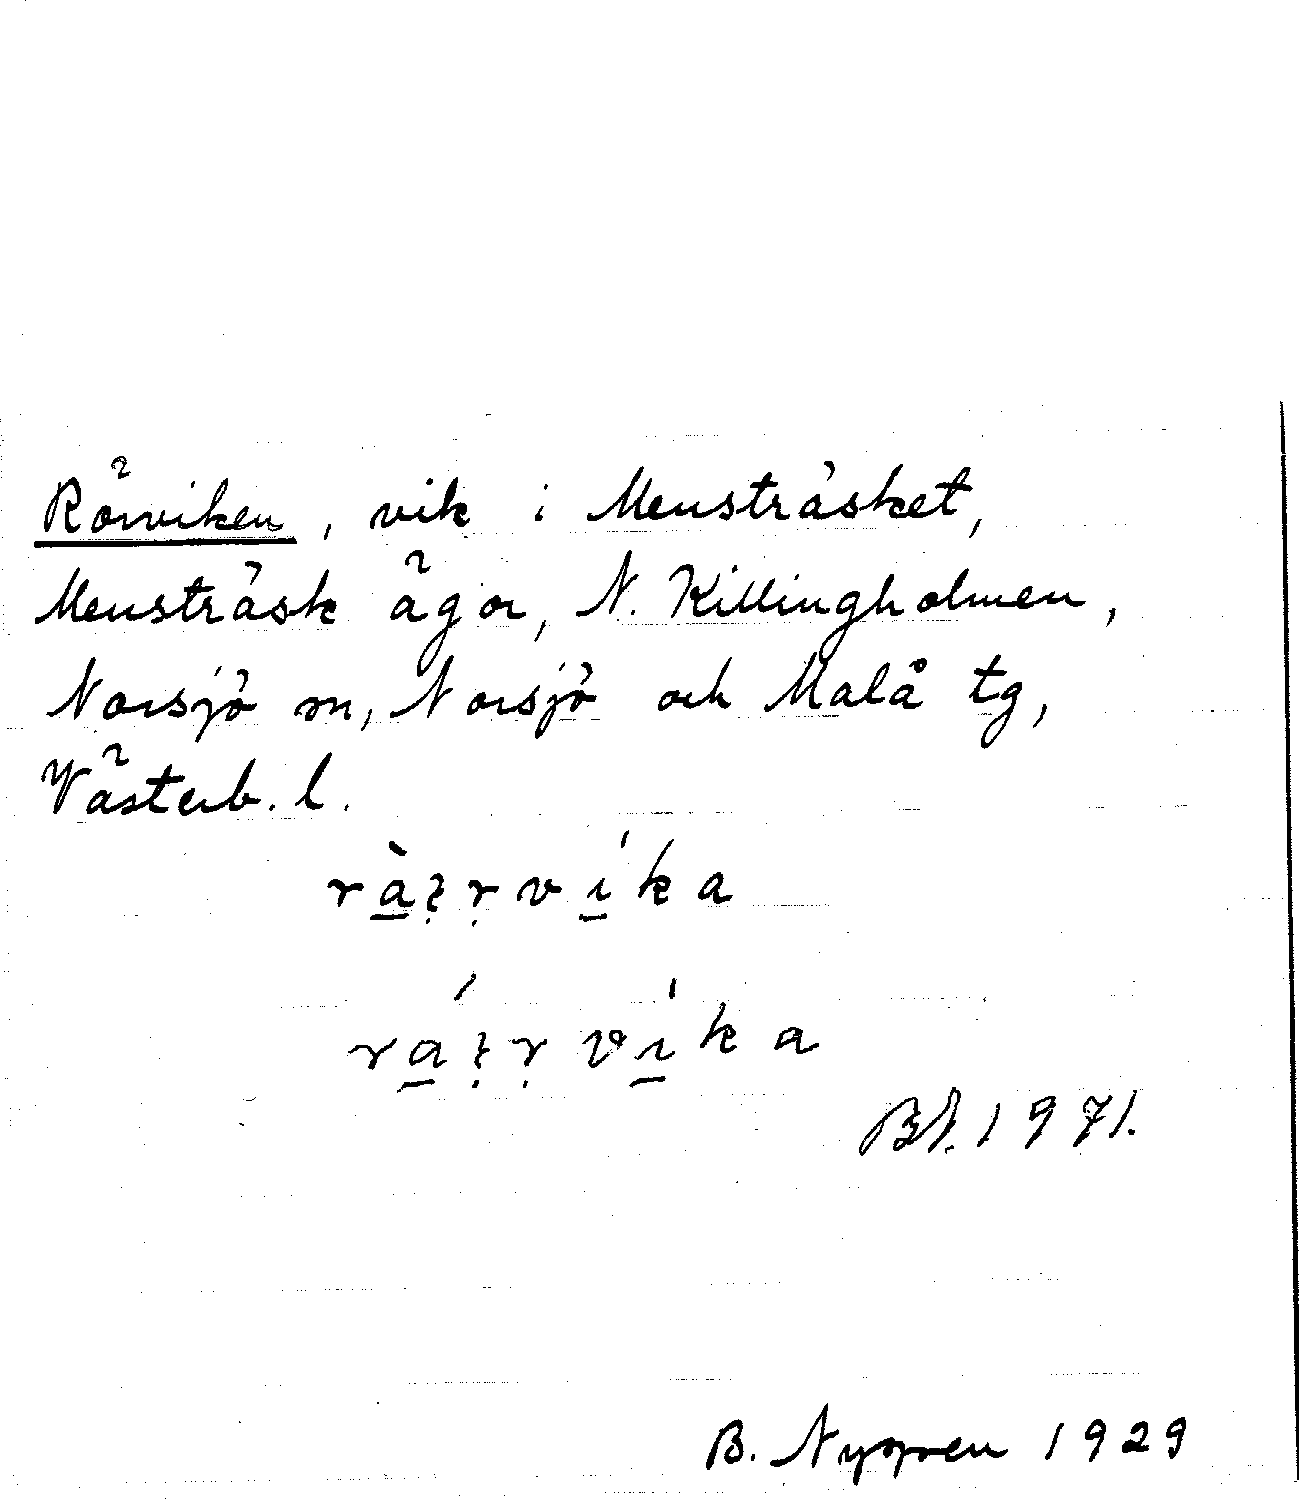 Rörviken, vik i Mensträsket,
Mensträsk ägor, N. Killingholmen,
Norsjö sn, Norsjö och Malå tg,
Västerb. l.
rà̱ṛvi̱ka
rá̱ṛvi̱ka
1971.
B. 1929